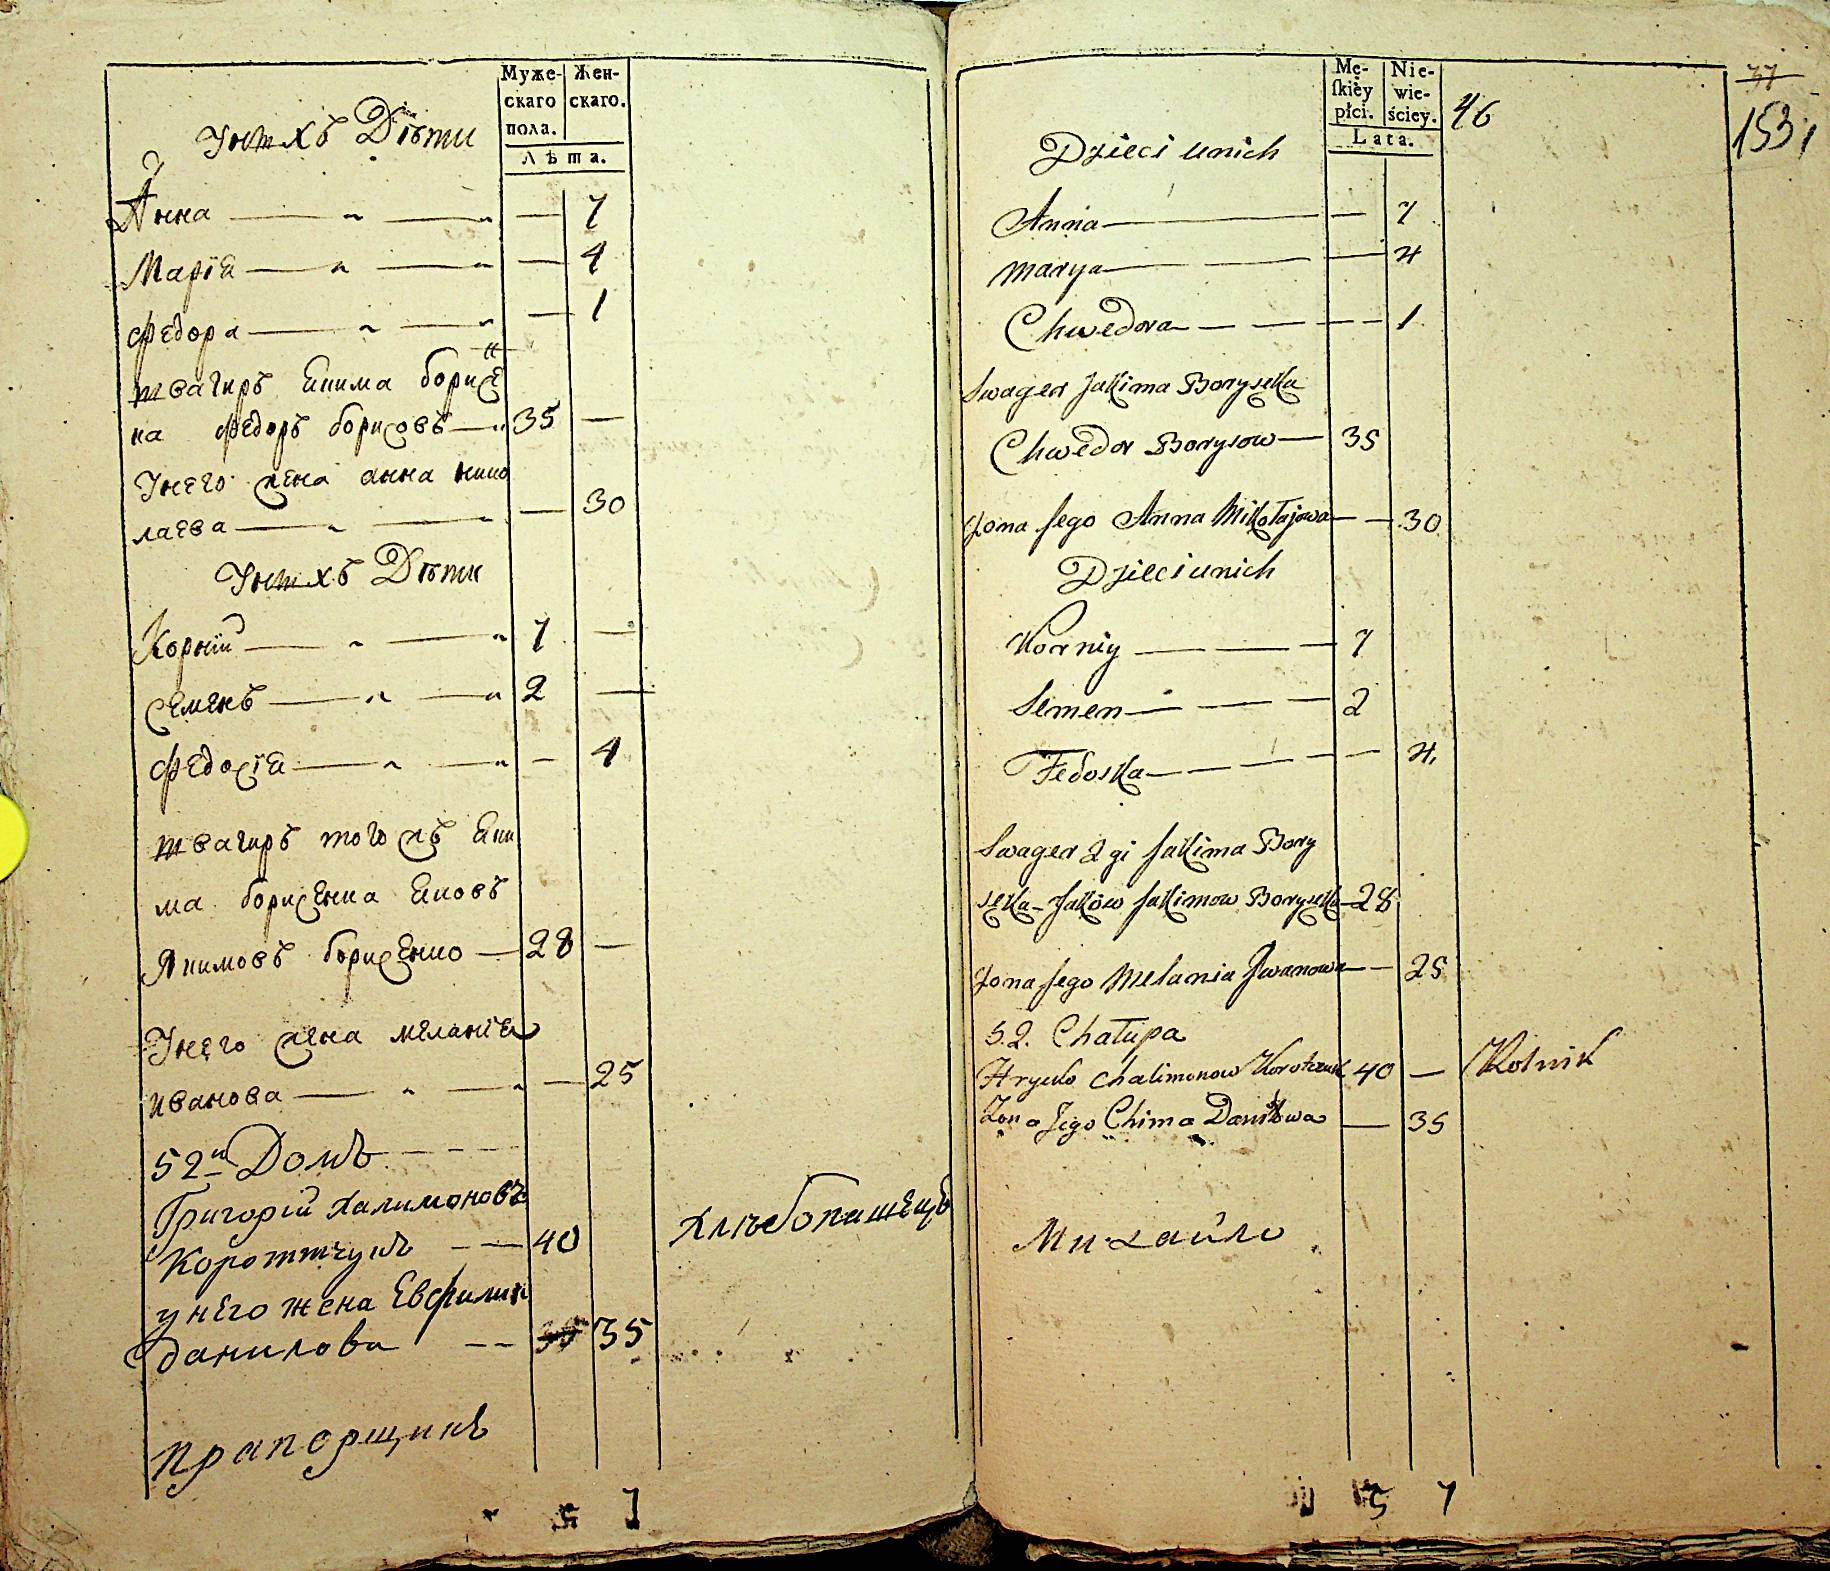 Мужескаго пола. Женскаго.
Лѣта.
Унихъ Дѣти
Анна — — — 7
Марія — — — 4
Федора — — — 1
швагиръ Якима борисе
на Федоръ борисовъ — 35 —
Унего жена анна нико
лаева — — — 30
Унихъ Дѣти
Корній — — 7 —
семенъ — — 2 —
Федосія — — — 4
швагиръ того жъ Яки
ма борисенка Яковъ
Якимовъ борисенко — 28 —
Унего жена меланія
иванова — — — 25
52й Домъ
Григорій халимоновъ
Коротчукъ — — 40 хлѣбопашецъ
у него жена Евфимия
данилова — — 35
прапорщикъ
5 7
Męskiéy płci. Niewieściey.
Lata.
46
37
153
Dzieci unich
Anna — — 7
Marya — — 4
Chwedora — — — 1
Swager Jakima Boryseka
Chwedor Borysow — 35
Zona Jego Anna Mikołajowa — — 30
Dzieci unich
Korniy — — — 7
Semen — — — 2
Fedoska — — — 4
Swager 2gi Jakima Bory
seka Jakow Jakimow Boryseka 28
Zona Jego Melania Jwanowa — — 25
52. Chałupa
Hryćko Chalimonow Korotczuk 40 — Rolnik
Zona Jego Chima Daniłowa — 35
Михайло
5 7